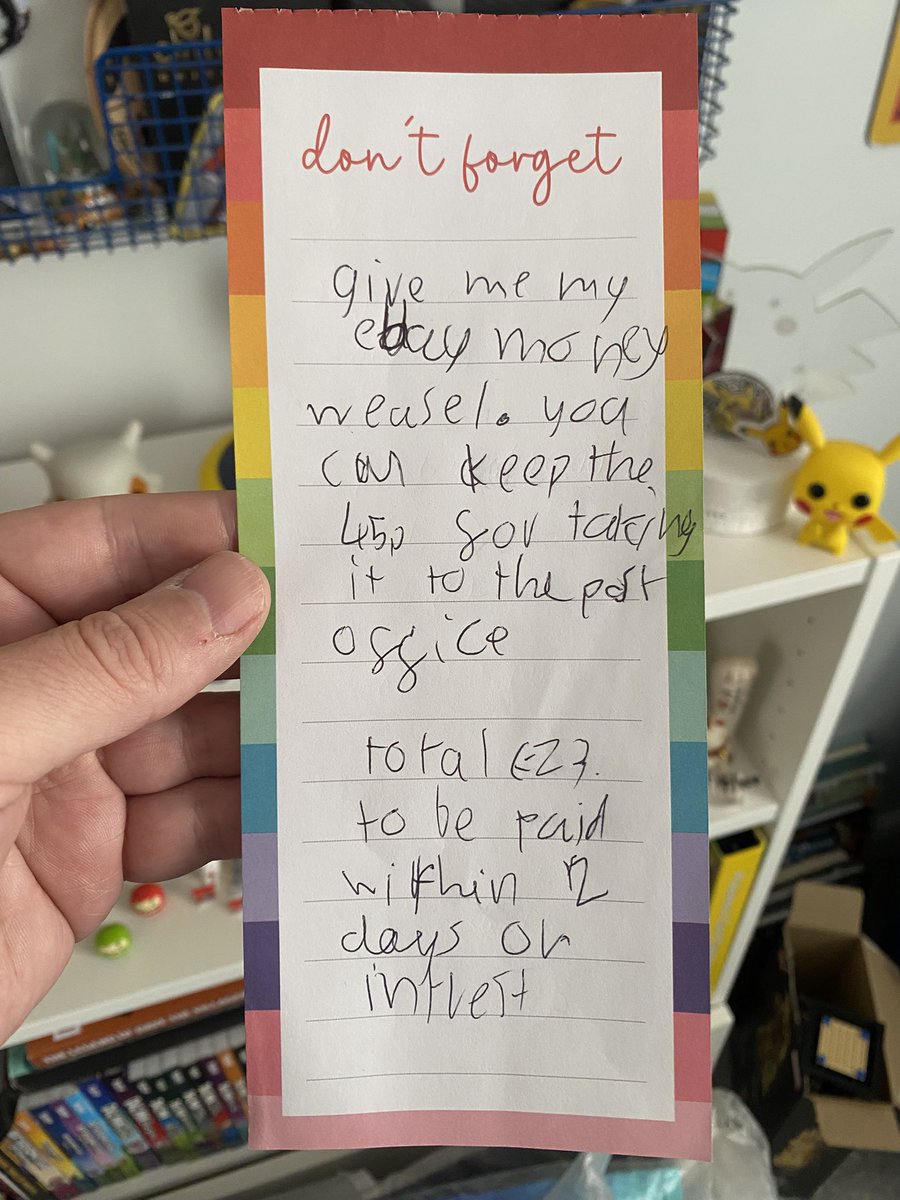 don't forget
give me my
ebay money
weasel. you
can keep the
45p for taking
it to the post
office
total £23.
to be paid
within 2
days or
intrest